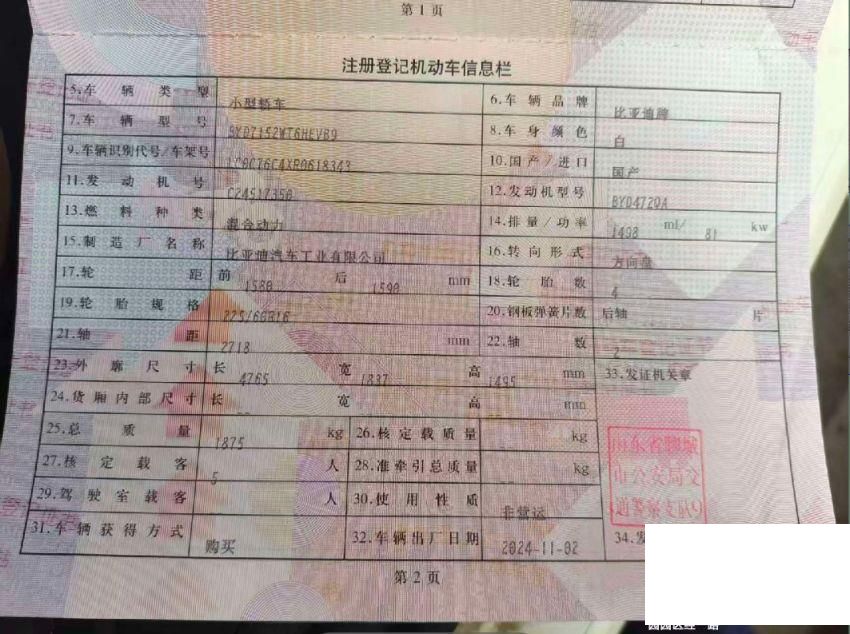 第1页
注册登记机动车信息栏
5.车辆类型 小型轿车 6.车辆品牌 比亚迪牌
7.车辆型号 BYD7152WT6HEVB9 8.车身颜色 白
9.车辆识别代号/车架号 LC0C76C4XR0618343 10.国产/进口 国产
11.发动机号 12.发动机型号 BYD472QA
13.燃料种类 混合动力 14.排量/功率 1498 ml/ 81 kw
15.制造厂名称 比亚迪汽车工业有限公司 16.转向形式 方向盘
17.轮距 前 1580 后 1590 mm 18.轮胎数 4
19.轮胎规格 225/60R16 20.钢板弹簧片数 后轴 片
21.轴距 2718 mm 22.轴数 2
23.外廓尺寸 长 4765 宽 1837 高 1495 mm 33.发证机关章
24.货厢内部尺寸 长 宽 高 mm
25.总质量 1875 kg 26.核定载质量 -- kg
27.核定载客 5 人 28.准牵引总质量 -- kg
29.驾驶室载客 人 30.使用性质 非营运
31.车辆获得方式 购买 32.车辆出厂日期 2024-11-02 34.发
山东省聊城
市公安局交
通警察支队
第2页